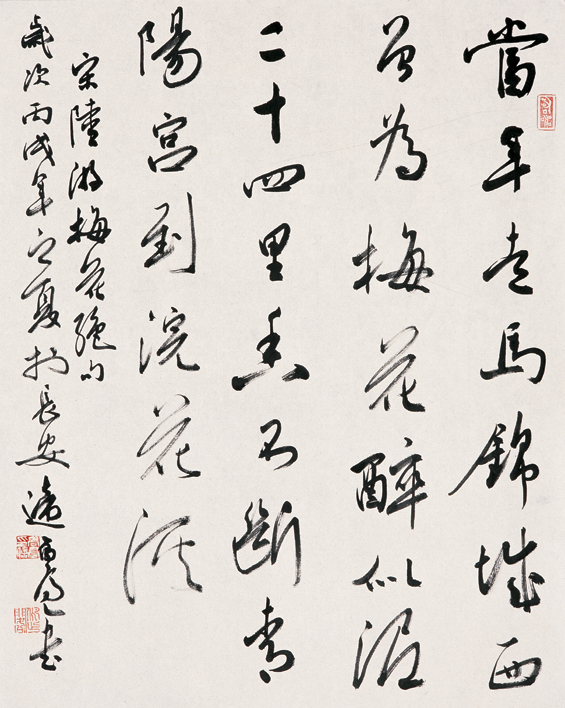 當年走馬錦城西
曾為梅花醉似泥
二十四里香不斷青
陽宮到浣花溪
宋陸游梅花絕句
歲次丙戌年之夏於長安
書